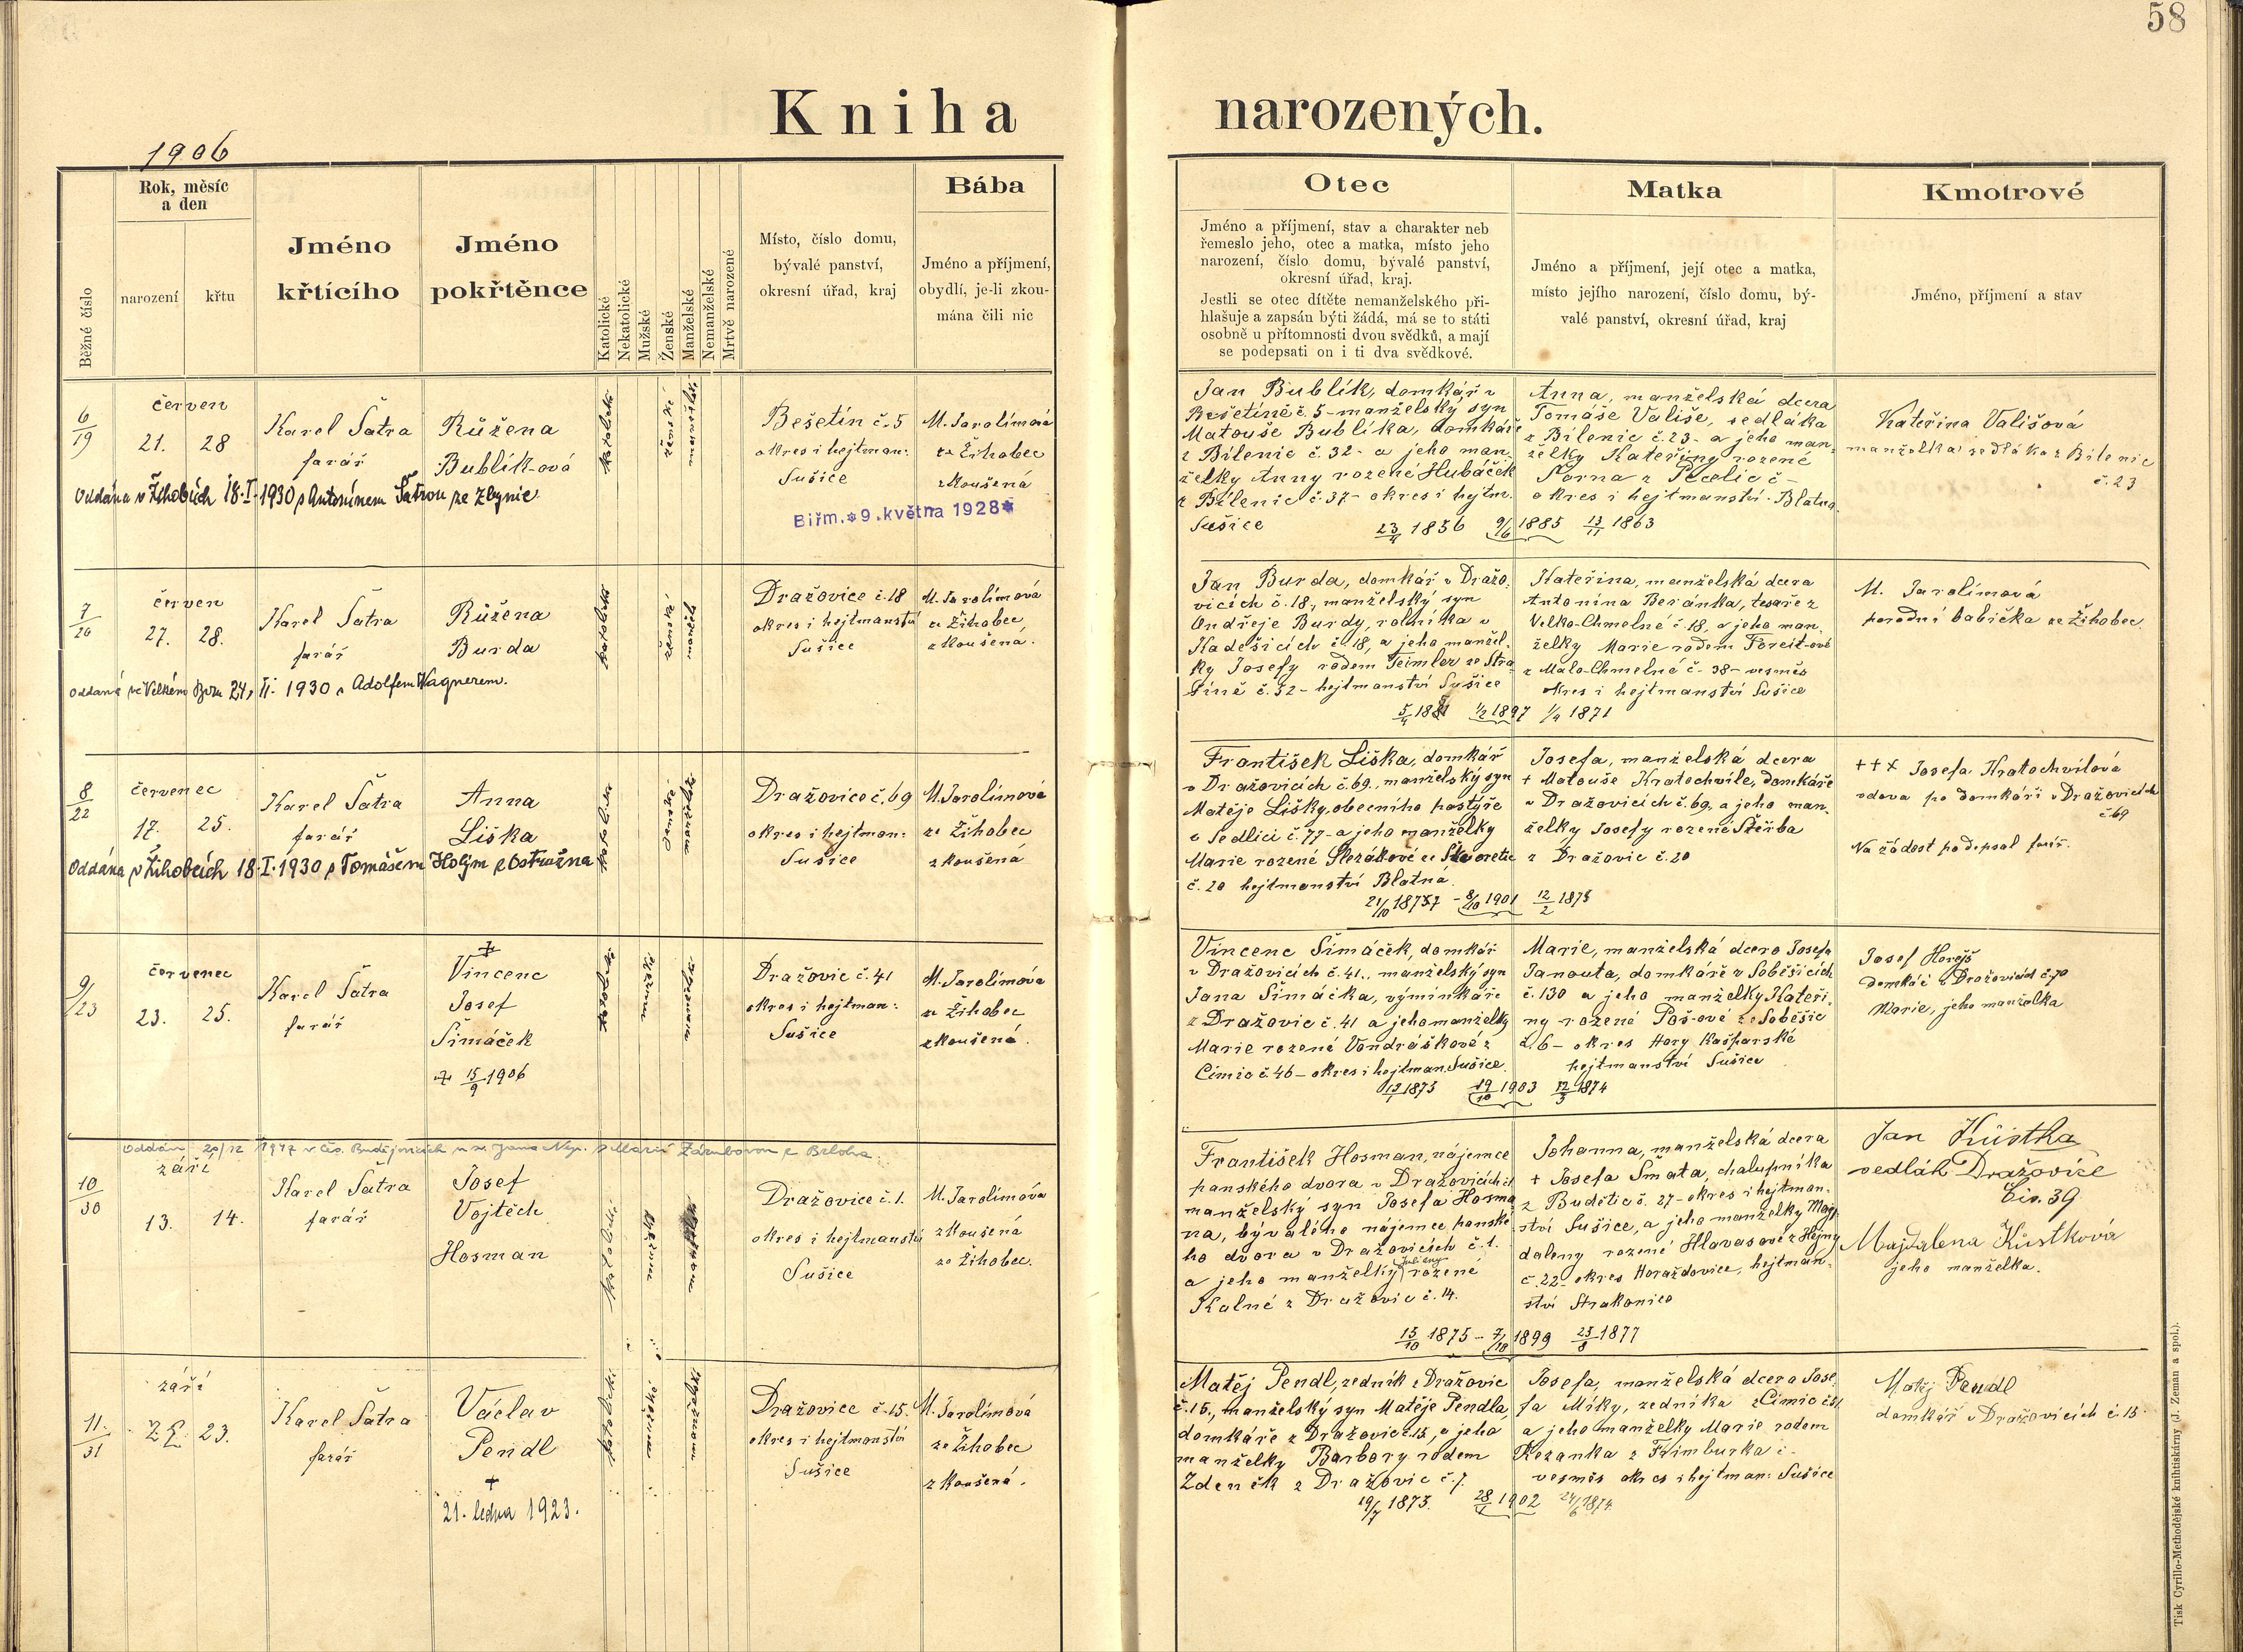 58
Kniha narozených.
1906
Běžné číslo
Rok, měsíc
a den
narození
křtu
Jméno
křtícího
Jméno
pokřtěnce
Katolické
Nekatolické
Mužské
Ženské
Manželské
Nemanželské
Mrtvě narozené
Místo, číslo domu,
bývalé panství,
okresní úřad, kraj
Bába
Jméno a příjmení,
obydlí, je-li zkou-
mána čili nic
Otec
Jméno a příjmení, stav a charakter neb
řemeslo jeho, otec a matka, místo jeho
narození, číslo domu, bývalé panství,
okresní úřad, kraj.
Jestli se otec dítěte nemanželského při-
hlašuje a zapsán býti žádá, má se to státi
osobně u přítomnosti dvou svědků, a mají
se podepsati on i ti dva svědkové.
Matka
Jméno a příjmení, její otec a matka,
místo jejího narození, číslo domu, bý-
valé panství, okresní úřad, kraj
Kmotrové
Jméno, příjmení a stav
6/19
červen
21. 28
Karel Šatra
farář
Růžena
Bublík-ová
katolické
ženské
manželské
Bešetín č. 5
okres i hejtman:
Sušice
M. Jarolímová
ze Žihobec
zkoušená
Oddána v Žihobcích 18.I.1930 s Antonínem Šatrou ze Zbynic
Biřm. * 9. května 1928 *
Jan Bublík, domkář v
Bešetíně č. 5 - manželský syn
Matouše Bublíka, domkáře
z Bílenic č. 32 - a jeho man
želky Anny rozené Hubáček
z Bílenic č. 37 - okres i hejtm.
Sušice
23/4 1856 9/6 1885 13/11 1863
Anna, manželská dcera
Tomáše Vališe, sedláka
z Bílenic č. 23 - a jeho man
želky Kateřiny rozené
z Pacelic č -
okres i hejtmanství Blatná
Kateřina Vališová
manželka sedláka z Bílenic
č. 23
7/20
červen
27. 28.
Karel Šatra
farář
Růžena
Burda
katolické
ženské
manžel.
Dražovice č. 18
okres i hejtmanství
Sušice
M. Jarolímová
ze Žihobec,
zkoušená.
Oddaná ve Velkém Boru 24. II. 1930 s Adolfem Wagnerem.
Jan Burda, domkář v Dražo-
vicích č. 18., manželský syn
Ondřeje Burdy, rolníka v
Kadešicích č. 18, a jeho manžel-
ky Josefy rodem Teimler ze Stra
šíně č. 32 - hejtmanství Sušice
1/2 1897 1/4 1871
Kateřina, manželská dcera
Antonína Beránka, tesaře z
Velko-Chmelné č. 18, a jeho man
želky Marie rodem Foreit-ové
z Malo-Chmelné č. 38 - vesměs
okres i hejtmanství Sušice
M. Jarolímová
porodní babička ze Žihobec
8/22
červenec
17. 25.
Karel Šatra
farář
Anna
Liška
katolické
ženské
manželské
Dražovice č. 69
okres i hejtman:
Sušice
M. Jarolímová
ze Žihobec
zkoušená
Oddána v Žihobcích 18.I.1930 s Tomášem Holým z Ostružna
František Liška, domkář
v Dražovicích č. 69., manželský syn
Matěje Lišky, obecního pastýře
v Sedlici č. 77 - a jeho manželky
Marie rozené Slezákové ze Škvoretic
č. 20 hejtmanství Blatná
8/10 1901 12/2 1875
Josefa, manželská dcera
+ Matouše Kratochvíle, domkáře
v Dražovicích č. 69. a jeho man.
želky Josefy rozené Štěrba
z Dražovic č. 20
+++ Josefa Kratochvílová
vdova po domkáři v Dražovicích
č. 69
Na žádost podepsal farář.
9/23
červenec
23. 25.
Karel Šatra
farář
Vincenc
Josef
Šimáček
15/9 1906
katolické
mužské
manželské
Dražovic č. 41
okres i hejtman:
Sušice
M. Jarolímova
ze Žihobec
zkoušená.
Vincenc Šimáček, domkář
v Dražovicích č. 41., manželský syn
Jana Šimáčka, výminkáře
z Dražovic č. 41 a jeho manželky
Marie rozené Vondráškové z
Čimic č. 46 - okres i hejtman. Sušice.
1873 19/10 1903 12/3 1874
Marie, manželská dcera Josefa
Janouta, domkáře v Soběšicích
č. 130 a jeho manželky Kateři-
ny rozené Poš-ové ze Soběšic
č. 6 - okres Hory Kašparské
hejtmanství Sušice
Josef Horejš
domkář v Dražovicích č. 70
Marie, jeho manželka
Oddán 20/12 1947 v Čes. Budějovicích u sv. Jana Nep. s Marií Zárubovou z Brloha.
10/30
září
13. 14.
Karel Šatra
farář
Josef
Vojtěch
Hosman
katolické
mužské
manželské
Dražovice č. 1.
okres i hejtmanství
Sušice
M. Jarolímóva
zkoušená
ze Žihobec.
František Hosman, nájemce
panského dvora v Dražovicích č. 1
manželský syn Josefa Hosma
na, bývalého nájemce panské-
ho dvora v Dražovicích č. 1.
a jeho manželky Julieny rozené
Kalné z Dražovic č. 14.
15/10 1875 - 7/10 1899 25/8 1877
Johanna, manželská dcera
+ Josefa Šmata, chalupníka
z Budětic č. 27 - okres i hejtman-
ství Sušice, a jeho manželky Mag-
daleny rozené Hlavasové z Hejny
č. 22 - okres Horaždovice, hejtman-
ství Strakonice
Jan Kůstka
sedlák Dražovice
Čís. 39
Majdalena Kůstková
jeho manželka.
11./31
září
22. 23.
Karel Šatra
farář
Václav
Pendl
+
21. ledna 1923.
katolické
mužské
manželské
Dražovice č. 15.
okres i hejtmanství
Sušice
M. Jarolímóva
ze Žihobec
zkoušená.
Matěj Pendl, zedník z Dražovic
č. 15., manželský syn Matěje Pendla,
domkáře z Dražovic č. 15, a jeho
manželky Barbory rodem
Zdeněk z Dražovic č. 7.
19/7 1873. 1902 24/6 1874
Josefa, manželská dcera Jose-
fa Míky, zedníka z Čimic č. 51
a jeho manželky Marie rodem
Řezanka z Frimburka č -
vesměs okres i hejtman: Sušice
Matěj Pendl
domkář v Dražovicích č. 15.
Tisk Cyrillo-Methodějské knihtiskárny (J. Zeman a spol.).